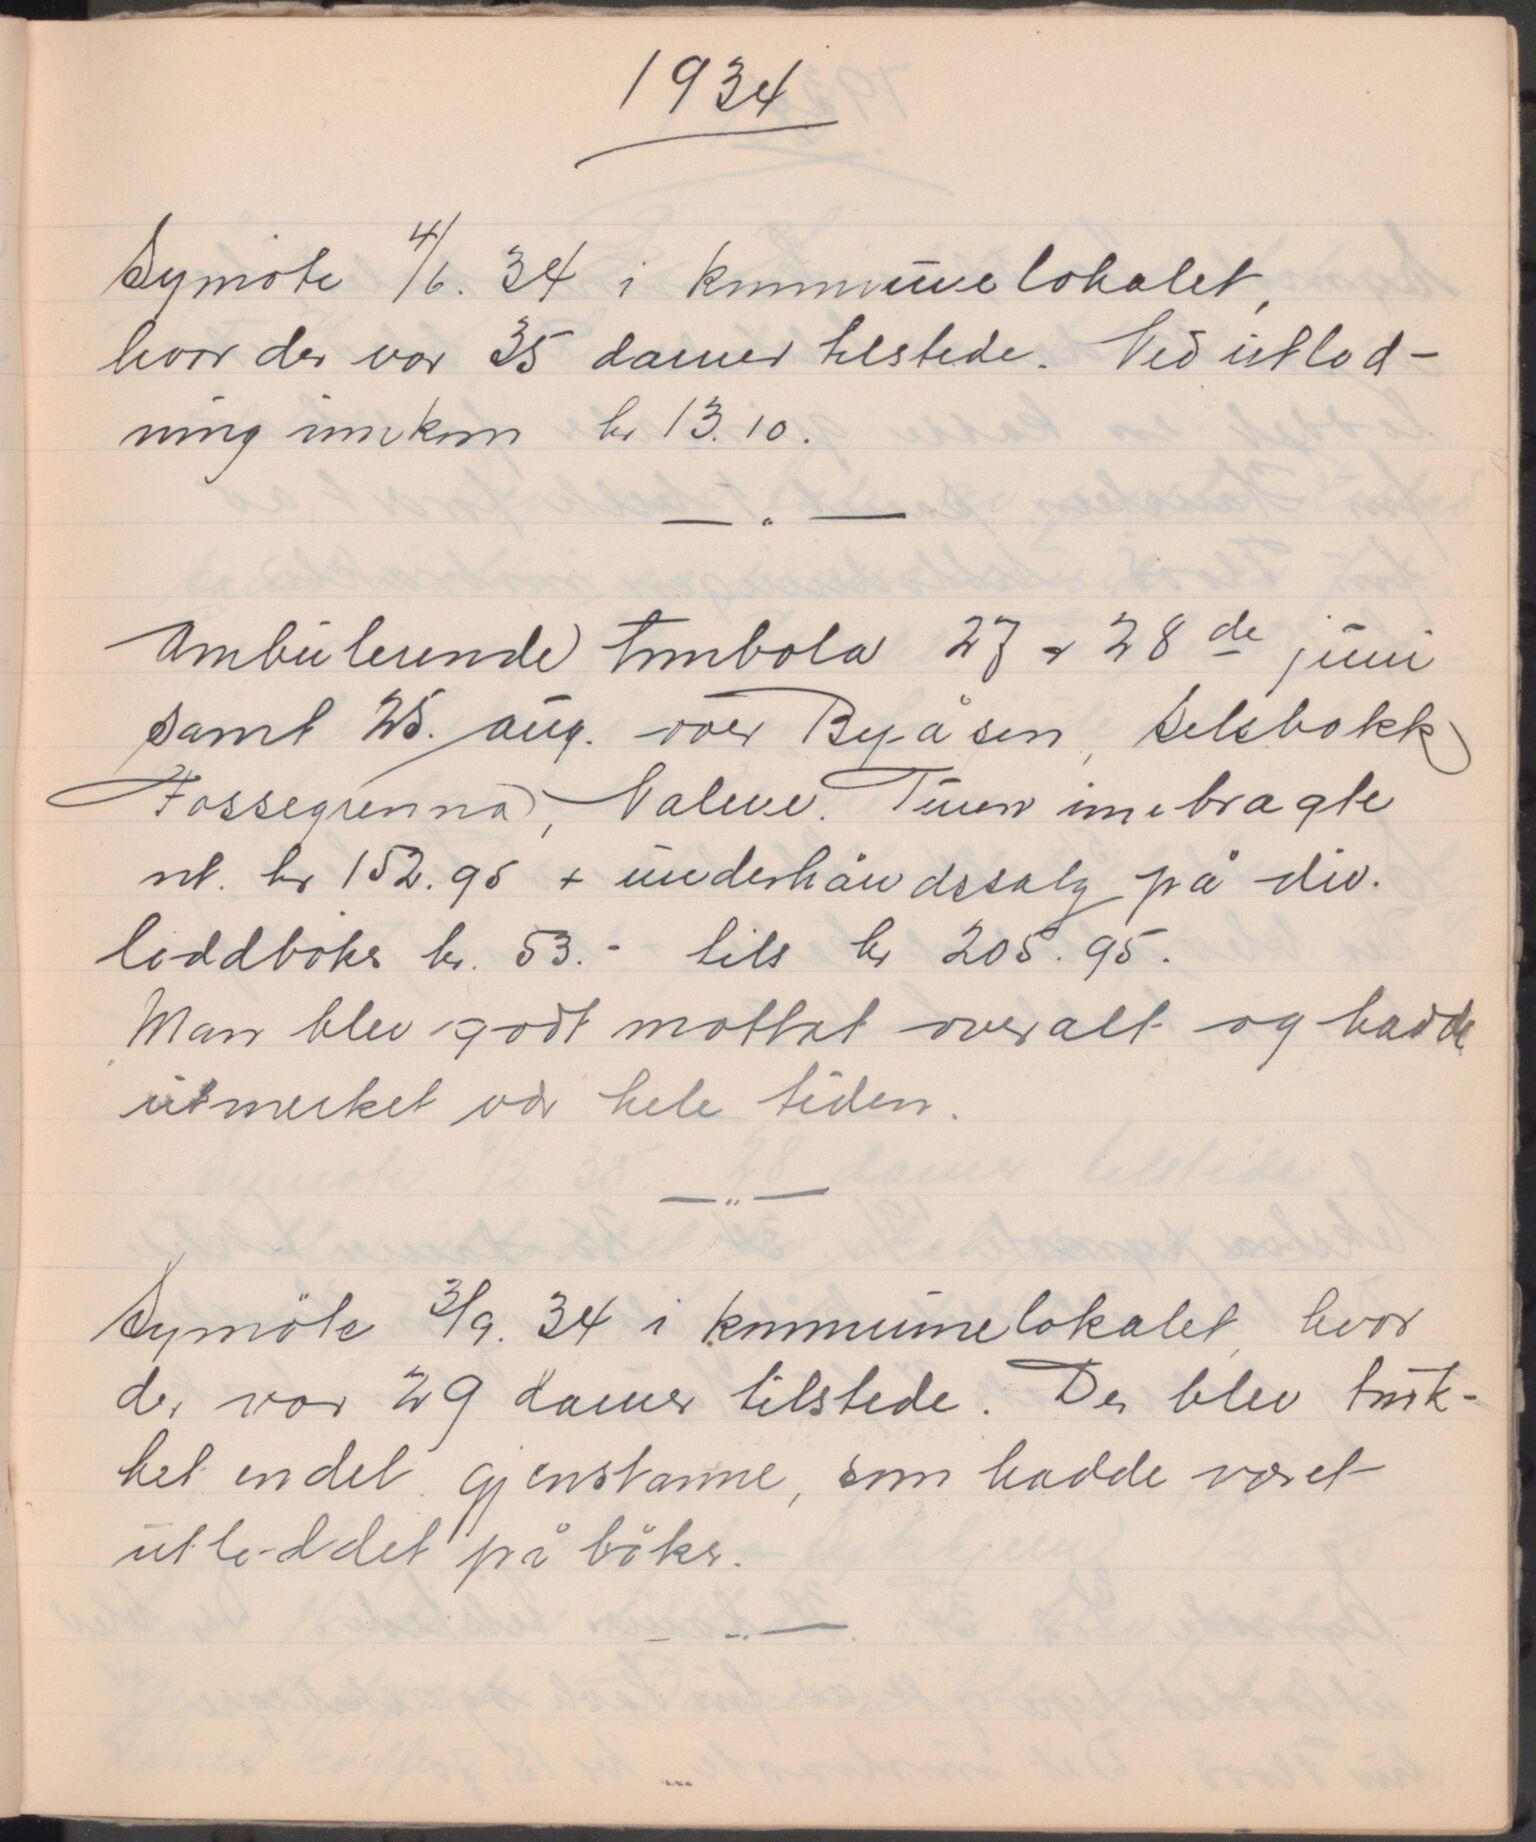 1934
Symöte 4/6. 34 i kommunelokalet,
hvor der var 35 damer tilstede. Ved utlod-
ning innkom kr 13.10.
Ambulerende tombola 27 & 28 de juni
samt 25. aug. över Byåsen, Selsbakk
Fossegrenna, Valene. Turen innbragte
nt. kr 152.95 + underhåndssalg på div.
loddböker kr. 53.- tils kr 205.95.
Man blev godt mottat overalt og hadde
utmerket vær hele tiden.
Symöte 3/9. 34 i kommunelokalet, hvor
der var 29 damer tilstede. Der blev truk-
ket endel gjenstanne, som hadde været
utloddet på böker.